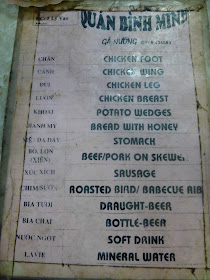 QUÁN BÌNH MINH
GÀ NƯỚNG
CHÂN CHICKEN FOOT
CÁNH CHICKEN WING
ĐÙI CHICKEN LEG
LƯỜN CHICKEN BREAST
KHOAI POTATO WEDGES
BÁNH MỲ BREAD WITH HONEY
MỀ - DẠ DÀY STOMACH
BÒ, LỢN BEEF/PORK ON SKEWER
(XIÊN)
XÚC XÍCH SAUSAGE
CHIM NƯỚNG ROASTED BIRD/ BABECUE RIB
BIA TƯƠI DRAUGHT-BEER
BIA CHAI BOTTLE-BEER
NƯỚC NGỌT SOFT DRINK
LAVIE MINERAL WATER